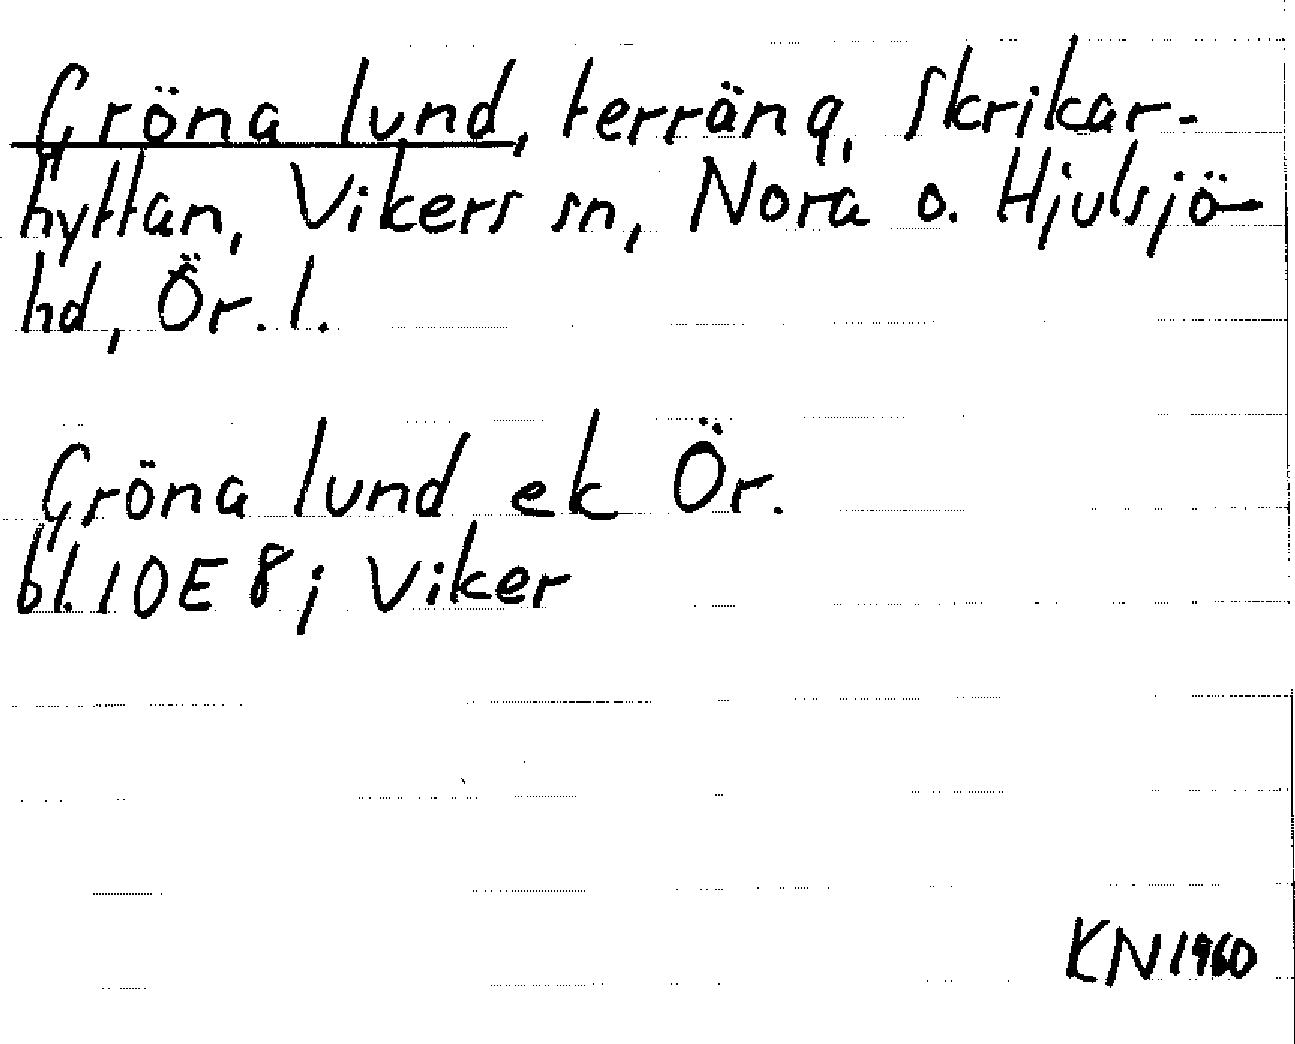 Gröna lund, terräng, Skrikar-
hyttan, Vikers sn, Nora o. Hjulsjö
hd, Ör. l.
Gröna lund ek Ör.
bl. 10E 8j Viker
KN 1960